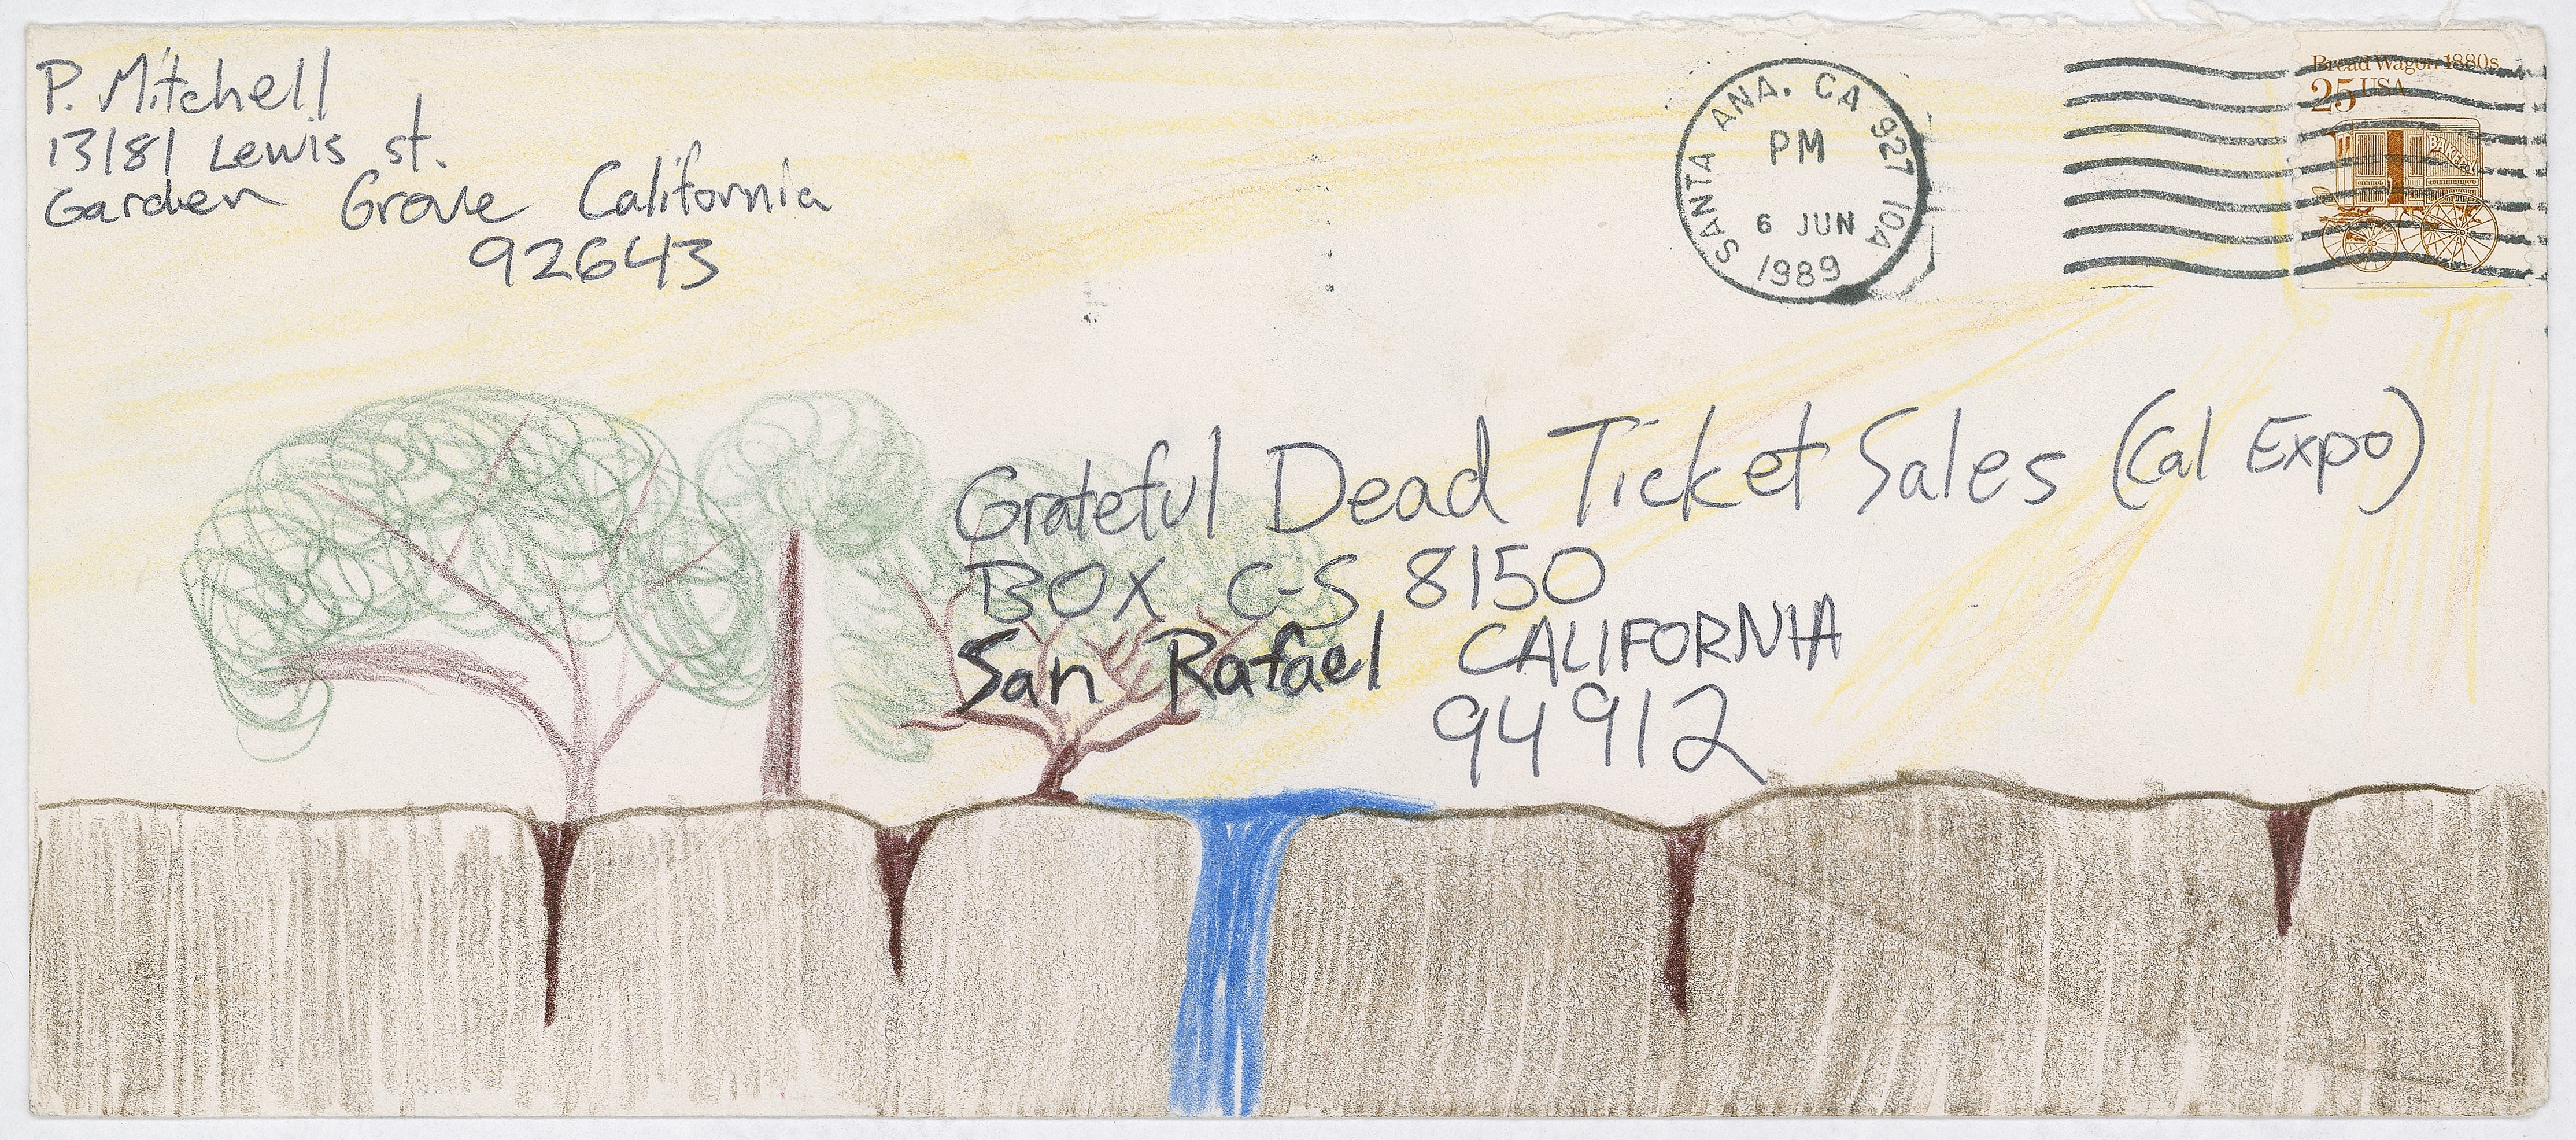 P. Mitchell
13181 Lewis st.
Garden Grove California
92643
SANTA ANA. CA 927 10A
PM
6 JUN
1989
Bread Wagon 1880s
25 USA
BAKERY
Grateful Dead Ticket Sales (Cal Expo)
BOX C-S 8150
San Rafael CALIFORNIA
94912